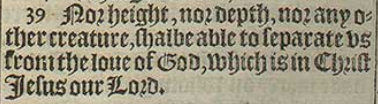 39 Nor height, nor depth, nor any o-
ther creature, shalbe able to separate vs
from the loue of God, which is in Christ
Jesus our Lord.